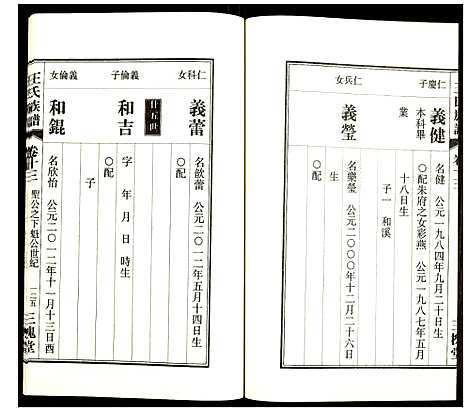 仁慶子
義健
本科畢業
名健 公元一九八四年九月二十日生
○配朱府之女彩燕 公元一九八七年五月
十八日生
子一 和溪
仁兵女
義瑩
名樂瑩 公元二○○○年十二月二十六日
生
○配
仁科女
義蕾
名歆蕾 公元二○一二年五月十四日生
○配
廿五世
義倫子
和吉
字 年 月 日 時生
○配
子
義倫女
和錕
名欣怡 公元二○一二年十一月十三日酉
○配
王氏族譜
卷十三
聖公之下魁公世紀
一二五
三槐堂